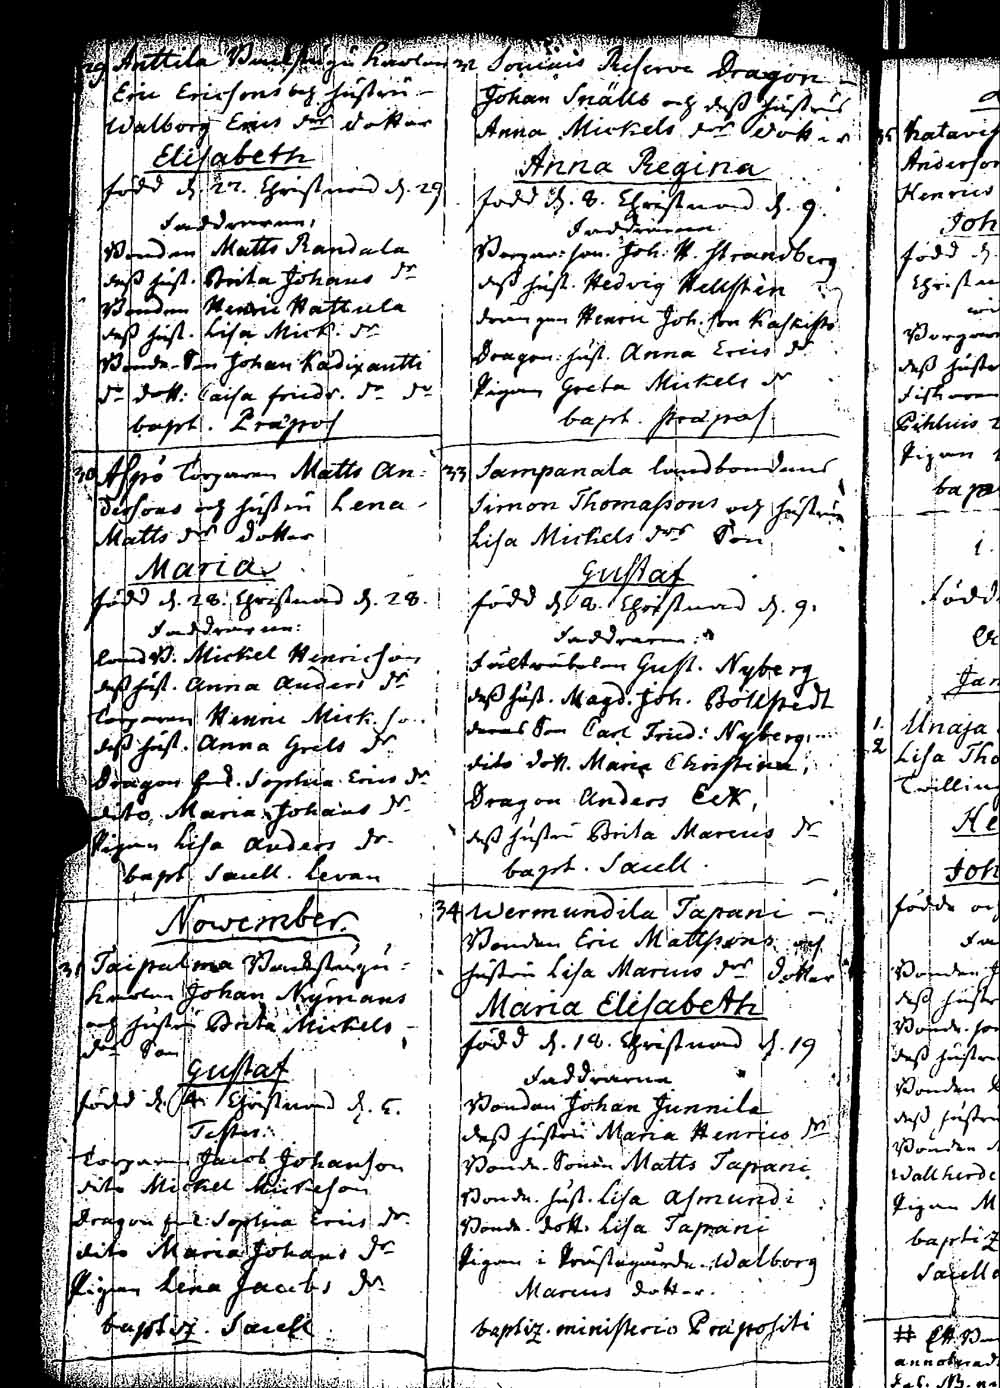 29 Anttila
Eric Ericsons och hustru
Walborg Erics dr dotter
Elisabeth
född d. 27. Christnad d. 29
Faddrarne,
Bonden Matts Randala
dess hust. Brita Johans dr
Bonden Henric Hattula
dess hust. Lisa Mick. dr
Bonde-Son Johan Kadixantti
dr dott: Caisa Friedr. dr dr
bapt. Præpos
30 Aspö Torparen Matts An-
dersons och hustru Lena
Matts dr dotter
Maria
född d. 28. Christnad d. 28.
Faddrarne:
Land B. Mickel Henricson
dess hust. Anna Anders dr
Torparen Henric Mick. so
dess hust. Anna Grels dr
Dragon Sophia Erics dr
dito Maria Johans dr
Pigan Lisa Anders dr
bapt. Sacell. Levan
November.
31 Taipalma
Johan Nymans
och hustru Brita Mickels
dr Son
Gustaf
född d. 4. Christnad d. 5.
Testes:
Torparen Jacob Johanson
dito Mickel Mickelson
Dragon Sophia Erics dr
dito Maria Johans dr
Pigan Lena Jacobs dr
baptiz. Sacell
32 Souinis Reserve Dragon
Johan Snälls och dess hustrus
Anna Mickels dr dotter
Anna Regina
född d. 8. Christnad d. 9.
Faddrarne
Joh. H. Strandberg
dess hust. Hedvig Hellstén
drängen Henric Joh. son Kaskisto
Dragon: hust. Anna Erics dr
Pigan Greta Mickels dr
bapt. Præpos
33 Sampanala landbondens
Simon Thomassons och hustrus
Lisa Mickels dr Son
Gustaf
född d. 8. Christnad d. 9.
Faddrarne:
Fältväbelen Gust. Nyberg
dess hust. Magd. Joh. Böllstedt
deras Son Carl Fried: Nyberg,
dito dott. Maria Christina,
Dragon Anders Eek,
dess hustru Brita Marcus dr
bapt. Sacell.
34 Wermundila Tapani
Bonden Eric Mattssons och
hustru Lisa Marcus dr dotter
Maria Elisabeth
född d. 18. Christnad d. 19
Faddrarne
Bonden Johan Junnila
dess hustru Maria Henrics dr
Bonde-Sonen Matts Tapani
Bonde. hust. Lisa Asmundi
Bonde. dott. Lisa Tapani
Pigan i Prästegården Walborg
Marcus dotter.
baptiz. ministerio Præpositi
35
Anderson
Henrics
Joh
född d.
dess hustr
Pigan
bap
1.
Född
Jan
1. Unaja
2 Lisa Tho
Twilling
He
Joh
födde och
Fa
Bonden J
dess hustr
Bonde. son
dess hustru
Bonden
dess hustru
Bonden
Pigan M
baptiz
Sacell
annoterad